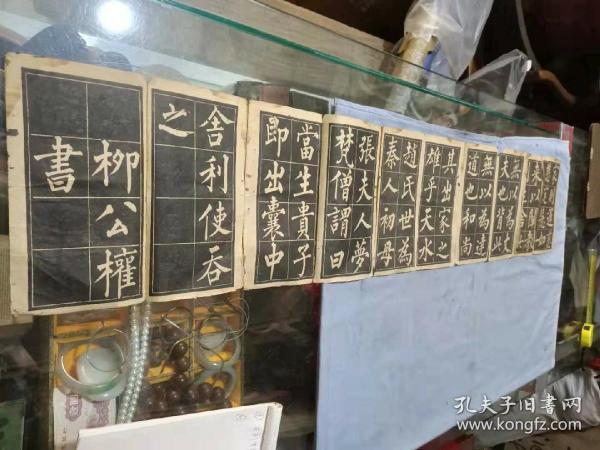 來以闡教
無以為丈
夫也背此
無以為達
道也和尚
其出家之
雄乎天水
趙氏世為
秦人初母
張夫人夢
梵僧謂曰
當生貴子
即出囊中
舍利使吞
之
柳公權
書
孔夫子旧書网
www.kongfz.com